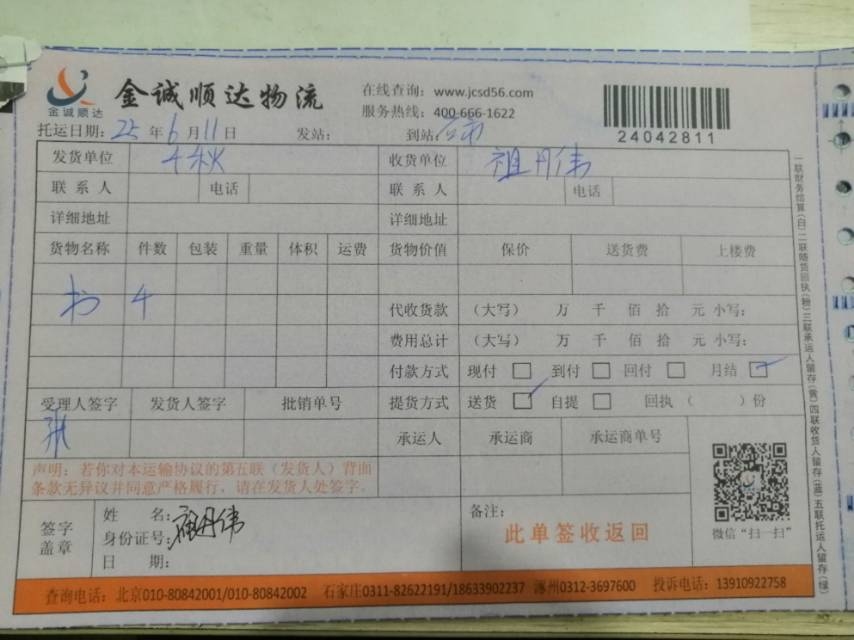 金诚顺达
金诚顺达物流
在线查询：www.jcsd56.com
服务热线：400-666-1622
24042811
托运日期：25年6月11日 发站： 到站：
发货单位 千秋 收货单位 祖丹伟
联系人 电话 联系人 电话
详细地址 详细地址
货物名称 件数 包装 重量 体积 运费 货物价值 保价 送货费 上楼费
书 4 代收货款 （大写） 万 千 佰 拾 元 小写：
费用总计 （大写） 万 千 佰 拾 元 小写：
付款方式 现付 到付 回付 月结
受理人签字 发货人签字 批销单号 提货方式 送货 自提 回执（ ）份
承运人 承运商 承运商单号
声明：若你对本运输协议的第五联（发货人）背面
条款无异议并同意严格履行，请在发货人处签字。
签字
盖章
姓 名：祖丹伟
身份证号：
日 期：
备注：
此单签收返回
微信“扫一扫”
查询电话：北京010-80842001/010-80842002 石家庄0311-82622191/18633902237 涿州0312-3697600 投诉电话：13910922758
一联财务结算(白)二联随货回执(粉)三联承运人留存(黄)四联收货人留存(蓝)五联托运人留存(绿)